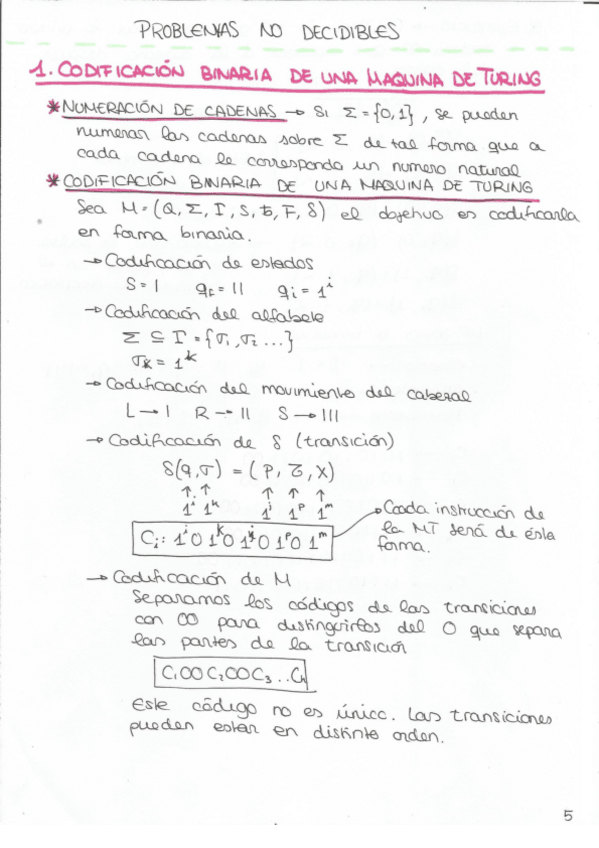 PROBLEMAS NO DECIDIBLES
1. CODIFICACIÓN BINARIA DE UNA MAQUINA DE TURING
* NUMERACIÓN DE CADENAS → Si Σ = {0,1}, se pueden
numerar las cadenas sobre Σ de tal forma que a
cada cadena le corresponda un numero natural
* CODIFICACIÓN BINARIA DE UNA MAQUINA DE TURING
Sea M = (Q, Σ, Γ, S, ƀ, F, δ) el objetivo es codificarla
en forma binaria.
→ Codificación de estados
S = 1 q_f = 11 q_i = 1^i
→ Codificación del alfabeto
Σ ⊆ Γ = {σ₁, σ₂ ...}
σ_k = 1^k
→ Codificación del movimiento del cabezal
L → 1 R → 11 S → 111
→ Codificación de δ (transición)
δ(q, σ) = (P, Z, X)
↑ ↑ ↑ ↑ ↑
1^i 1^k 1^j 1^p 1^m
C_i: 1^i 0 1^k 0 1^j 0 1^p 0 1^m
→ Cada instrucción de
la MT será de ésta
forma.
→ Codificación de M
Separamos los códigos de las transiciones
con 00 para distinguirlos del 0 que separa
las partes de la transición
C₁00C₂00C₃...Cₙ
Este código no es único. Las transiciones
pueden estar en distinto orden.
5